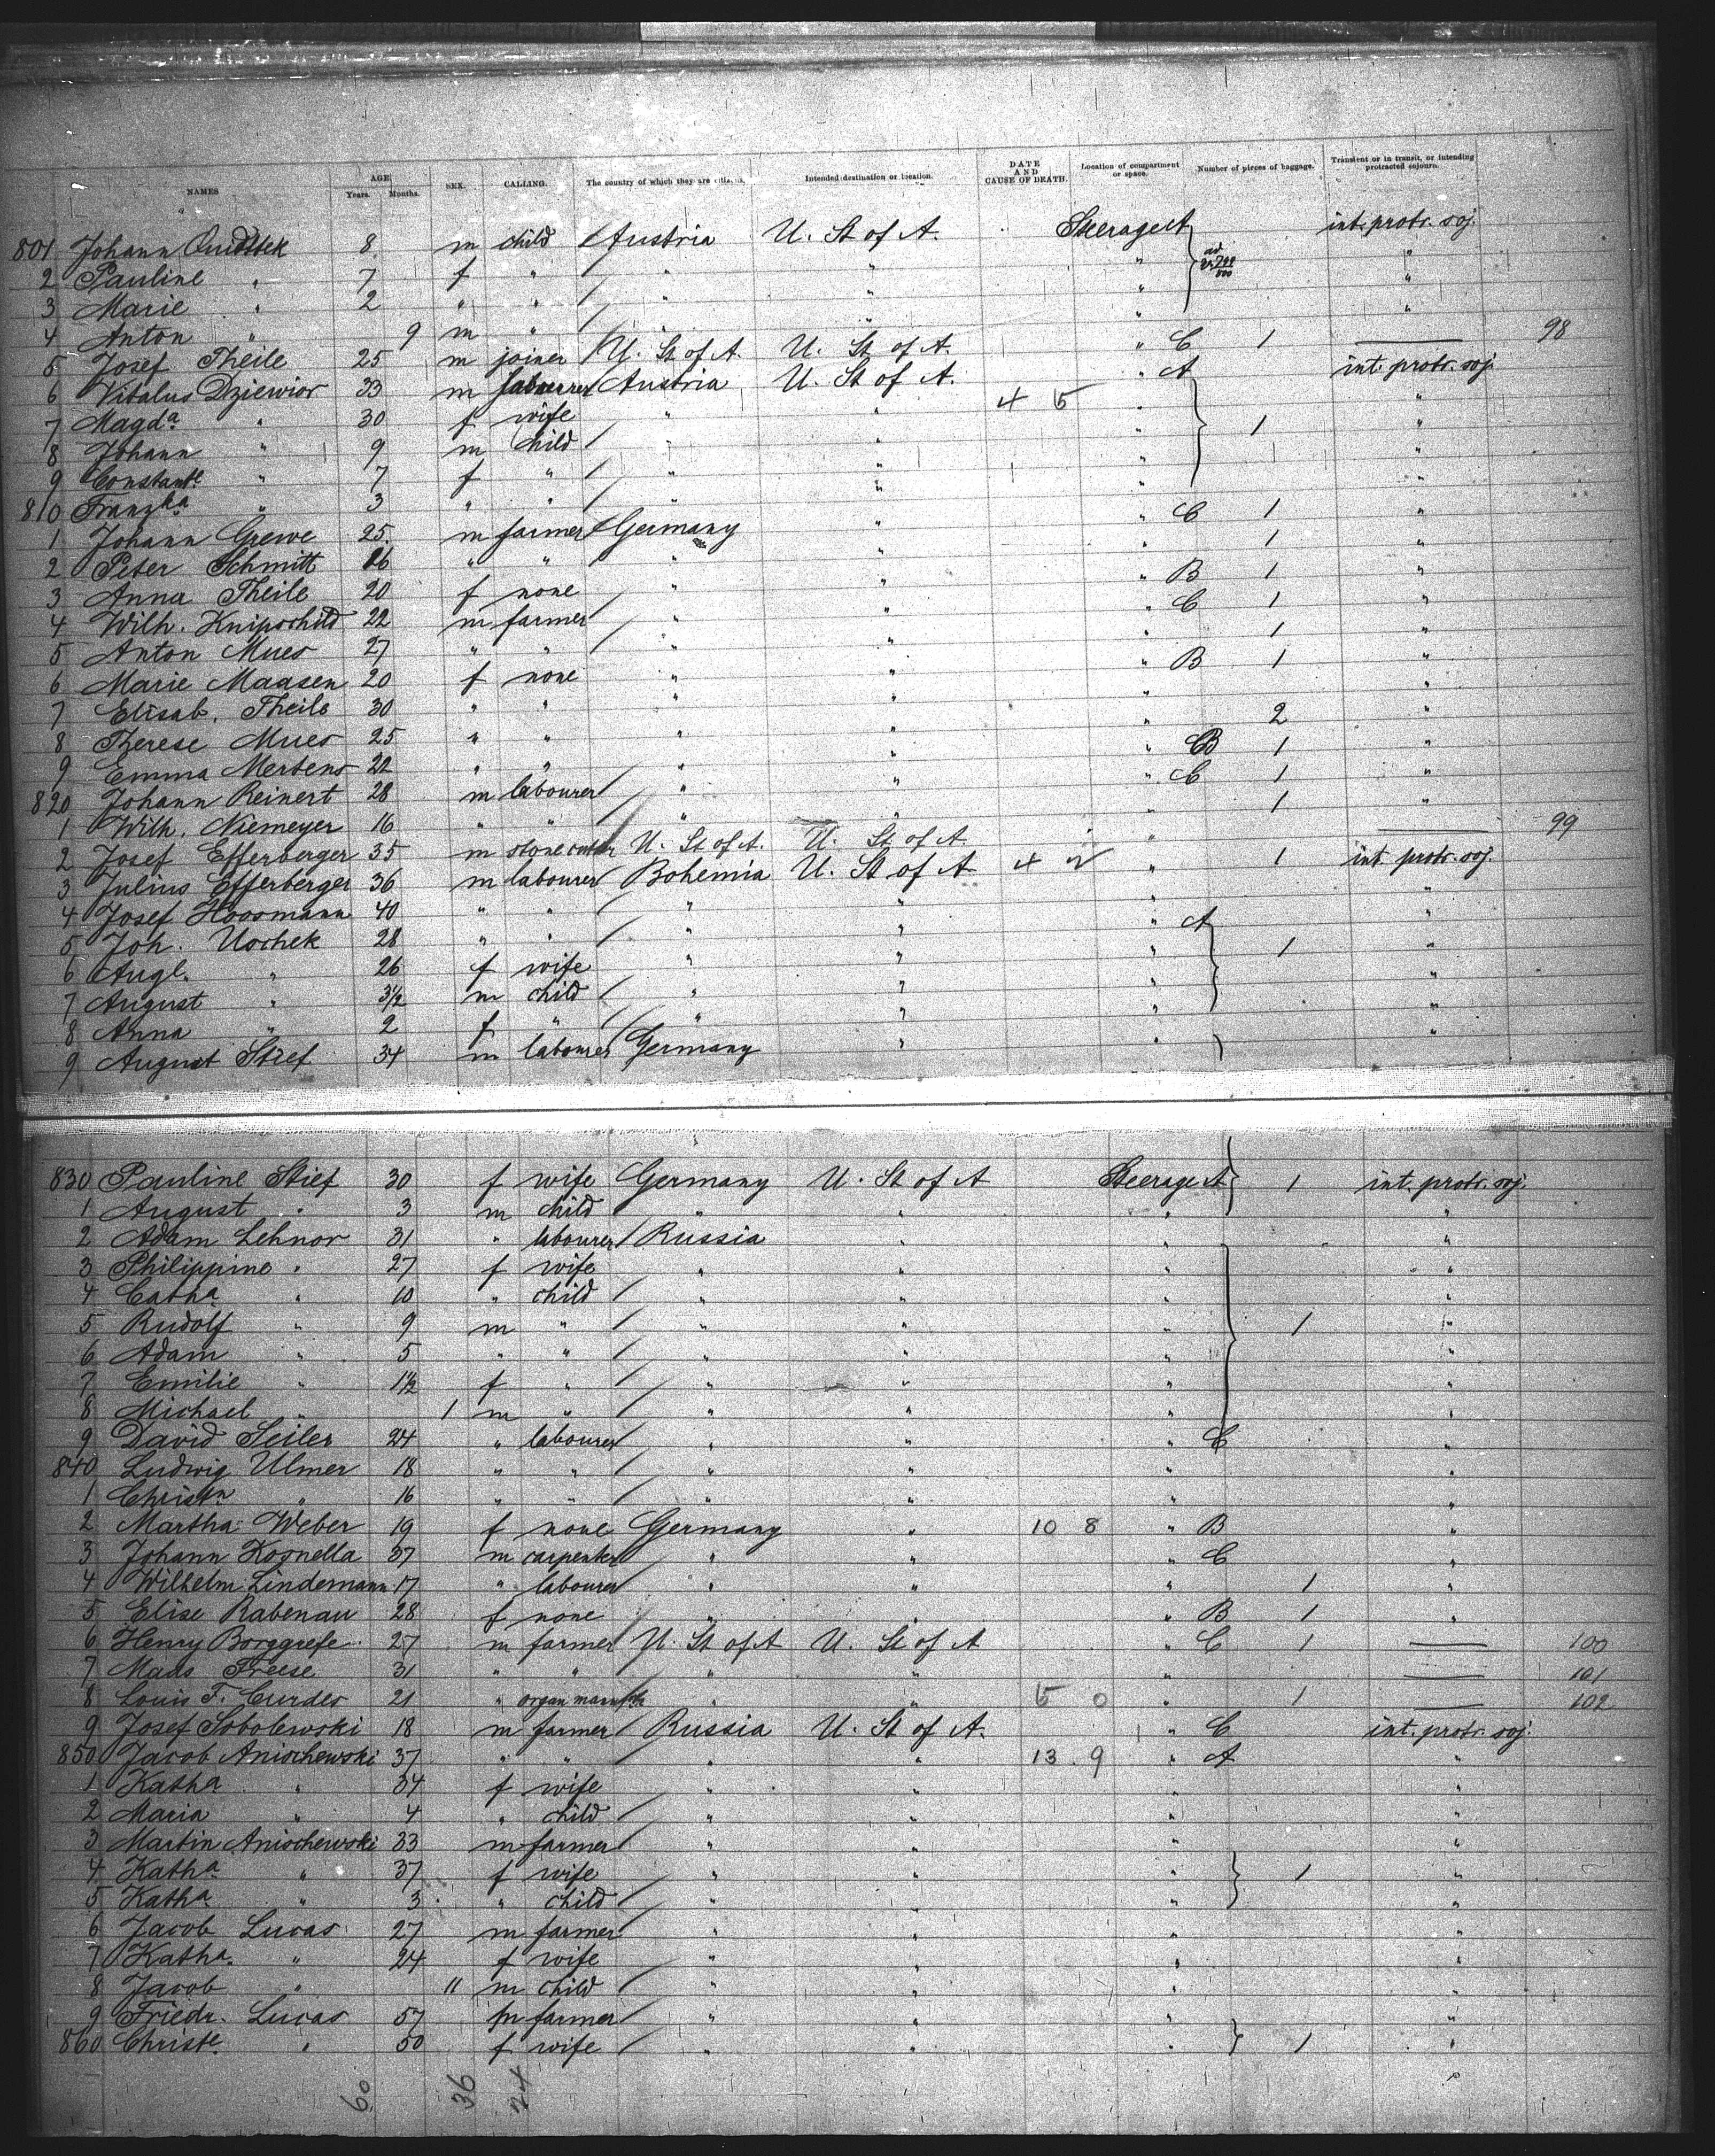 NAMES AGE Years. Months. SEX. CALLING. The country of which they are citizens. Intended destination or location. DATE AND CAUSE OF DEATH. Location of compartment or space. Number of pieces of baggage. Transient or in transit, or intending protracted sojourn.
801 Johann 8 m child Austria U. St of A. Steerage A int. protr. soj.
2 Pauline " 7 f " " " " "
3 Marie " 2 " " " " " "
4 Anton " 9 m " " " " "
5 Josef Theile 25 m joiner U. St of A. U. St of A. " C 1 — 98
6 Vitalus Dziewior 33 m labourer Austria U. St of A. " A int. protr. soj.
7 Magda " 30 f wife " " 4 5 " "
8 Johann " 9 m child " " " 1 "
9 Constante " 7 f " " " " "
810 Franzka " 3 " " " " " "
1 Johann Grewe 25 m farmer Germany " " C 1 "
2 Peter Schmitt 26 " " " " " 1 "
3 Anna Theile 20 f none " " " B 1 "
4 Wilh. Knipschild 22 m farmer " " " C 1 "
5 Anton Mues 27 " " " " " 1 "
6 Marie Maasen 20 f none " " " B 1 "
7 Elisab. Theile 30 " " " " " "
8 Therese Mues 25 " " " " " 2 "
9 Emma Mertens 22 " " " " " B 1 "
820 Johann Reinert 28 m labourer " " " C 1 "
1 Wilh. Niemeyer 16 " " " " " 1 "
2 Josef Efferberger 35 m stone cutter U. St of A. U. St of A. " — 99
3 Julius Efferberger 36 m labourer Bohemia U. St of A 4 " 1 int. protr. soj.
4 Josef Hoosmann 40 " " " " " "
5 Joh. Uochek 28 " " " " " A "
6 Augl. " 26 f wife " " " 1 "
7 August " 3½ m child " " " "
8 Anna " 2 f " " " " "
9 August Stief 34 m labourer Germany " " "
830 Pauline Stief 30 f wife Germany U. St of A Steerage A 1 int. protr. soj.
1 August " 3 m child " " " "
2 Adam Lehnor 31 " labourer Russia " " "
3 Philippine " 27 f wife " " " "
4 Catha " 10 " child " " " "
5 Rudolf " 9 m " " " " 1 "
6 Adam " 5 " " " " " "
7 Emilie " 1½ f " " " " "
8 Michael " 1 m " " " " "
9 David Seiler 24 " labourer " " " C "
840 Ludwig Ulmer 18 " " " " " "
1 Christn " 16 " " " " " "
2 Martha Weber 19 f none Germany " 10 8 " B "
3 Johann Kosnella 37 m carpenter " " " C "
4 Wilhelm Lindemann 17 " labourer " " " 1 "
5 Elise Rabenau 28 f none " " " B 1 "
6 Henry Borggrefe 27 m farmer U. St of A U. St of A " C 1 — 100
7 Mads Freese 31 " " " " " — 101
8 Louis F. Curdes 21 " organ " " 5 0 " 1 — 102
9 Josef Sobolewski 18 m farmer Russia U. St of A. " C int. protr. soj.
850 Jacob Anischewski 37 " " " " 13 9 " A "
1 Katha " 34 f wife " " " "
2 Maria " 4 " child " " " "
3 Martin Anischewski 33 m farmer " " " "
4 Katha " 37 f wife " " " 1 "
5 Katha " 3 " child " " " "
6 Jacob Lucas 27 m farmer " " " "
7 Katha " 24 f wife " " " "
8 Jacob " 11 m child " " " "
9 Friedr. Lucas 57 m farmer " " " "
860 Christe " 50 f wife " " " 1 "
60 36 24